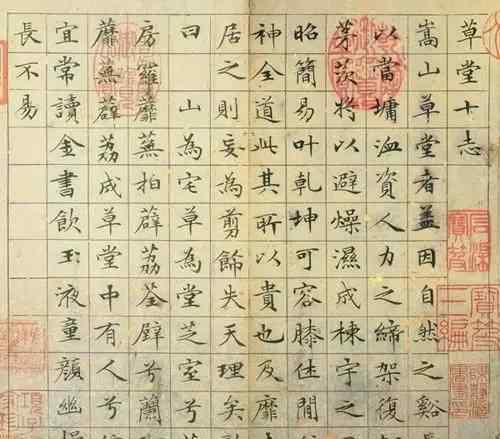 草堂十志
嵩山草堂者盖因自然之谿
以當墉洫資人力之締架復
茅茨将以避燥濕成棟宇之
昭簡易叶乾坤可容膝休閒
神全道此其所以貴也及靡
居之則妄為剪飾失天理矣
曰 山為宅草為堂芝室兮
房羅蘼蕪拍薜荔荃壁兮蘭
蘼蕪薜荔成草堂中有人兮
宜常讀金書飲玉液童顏幽操
長不易